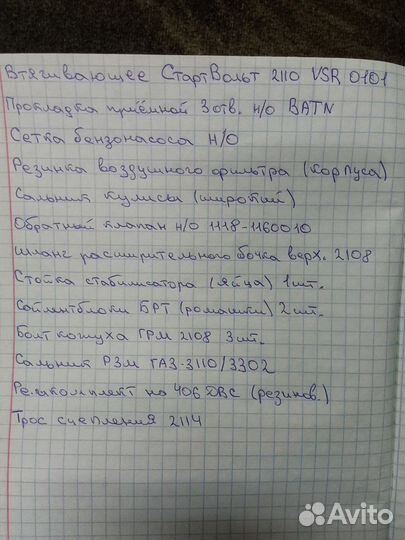 Втягивающее СтартВольт 2110 VSR 0101
Прокладка приёмной 3 отв. н/о BATN
Сетка бензонасоса н/о
Резинка воздушного фильтра (корпуса)
Сальник кулисы (широкий)
Обратный клапан н/о 1118-1160010
Шланг расширительного бочка верх. 2108
Стойка стабилизатора (яйца) 1 шт.
Сайлентблоки БРТ (ромашки) 2 шт.
Болт кожуха ГРМ 2108 3 шт.
Сальник РЗМ ГАЗ-3110/3302
Рем.комплект на 406 ДВС (резинов.)
Трос сцепления 2114
Avito